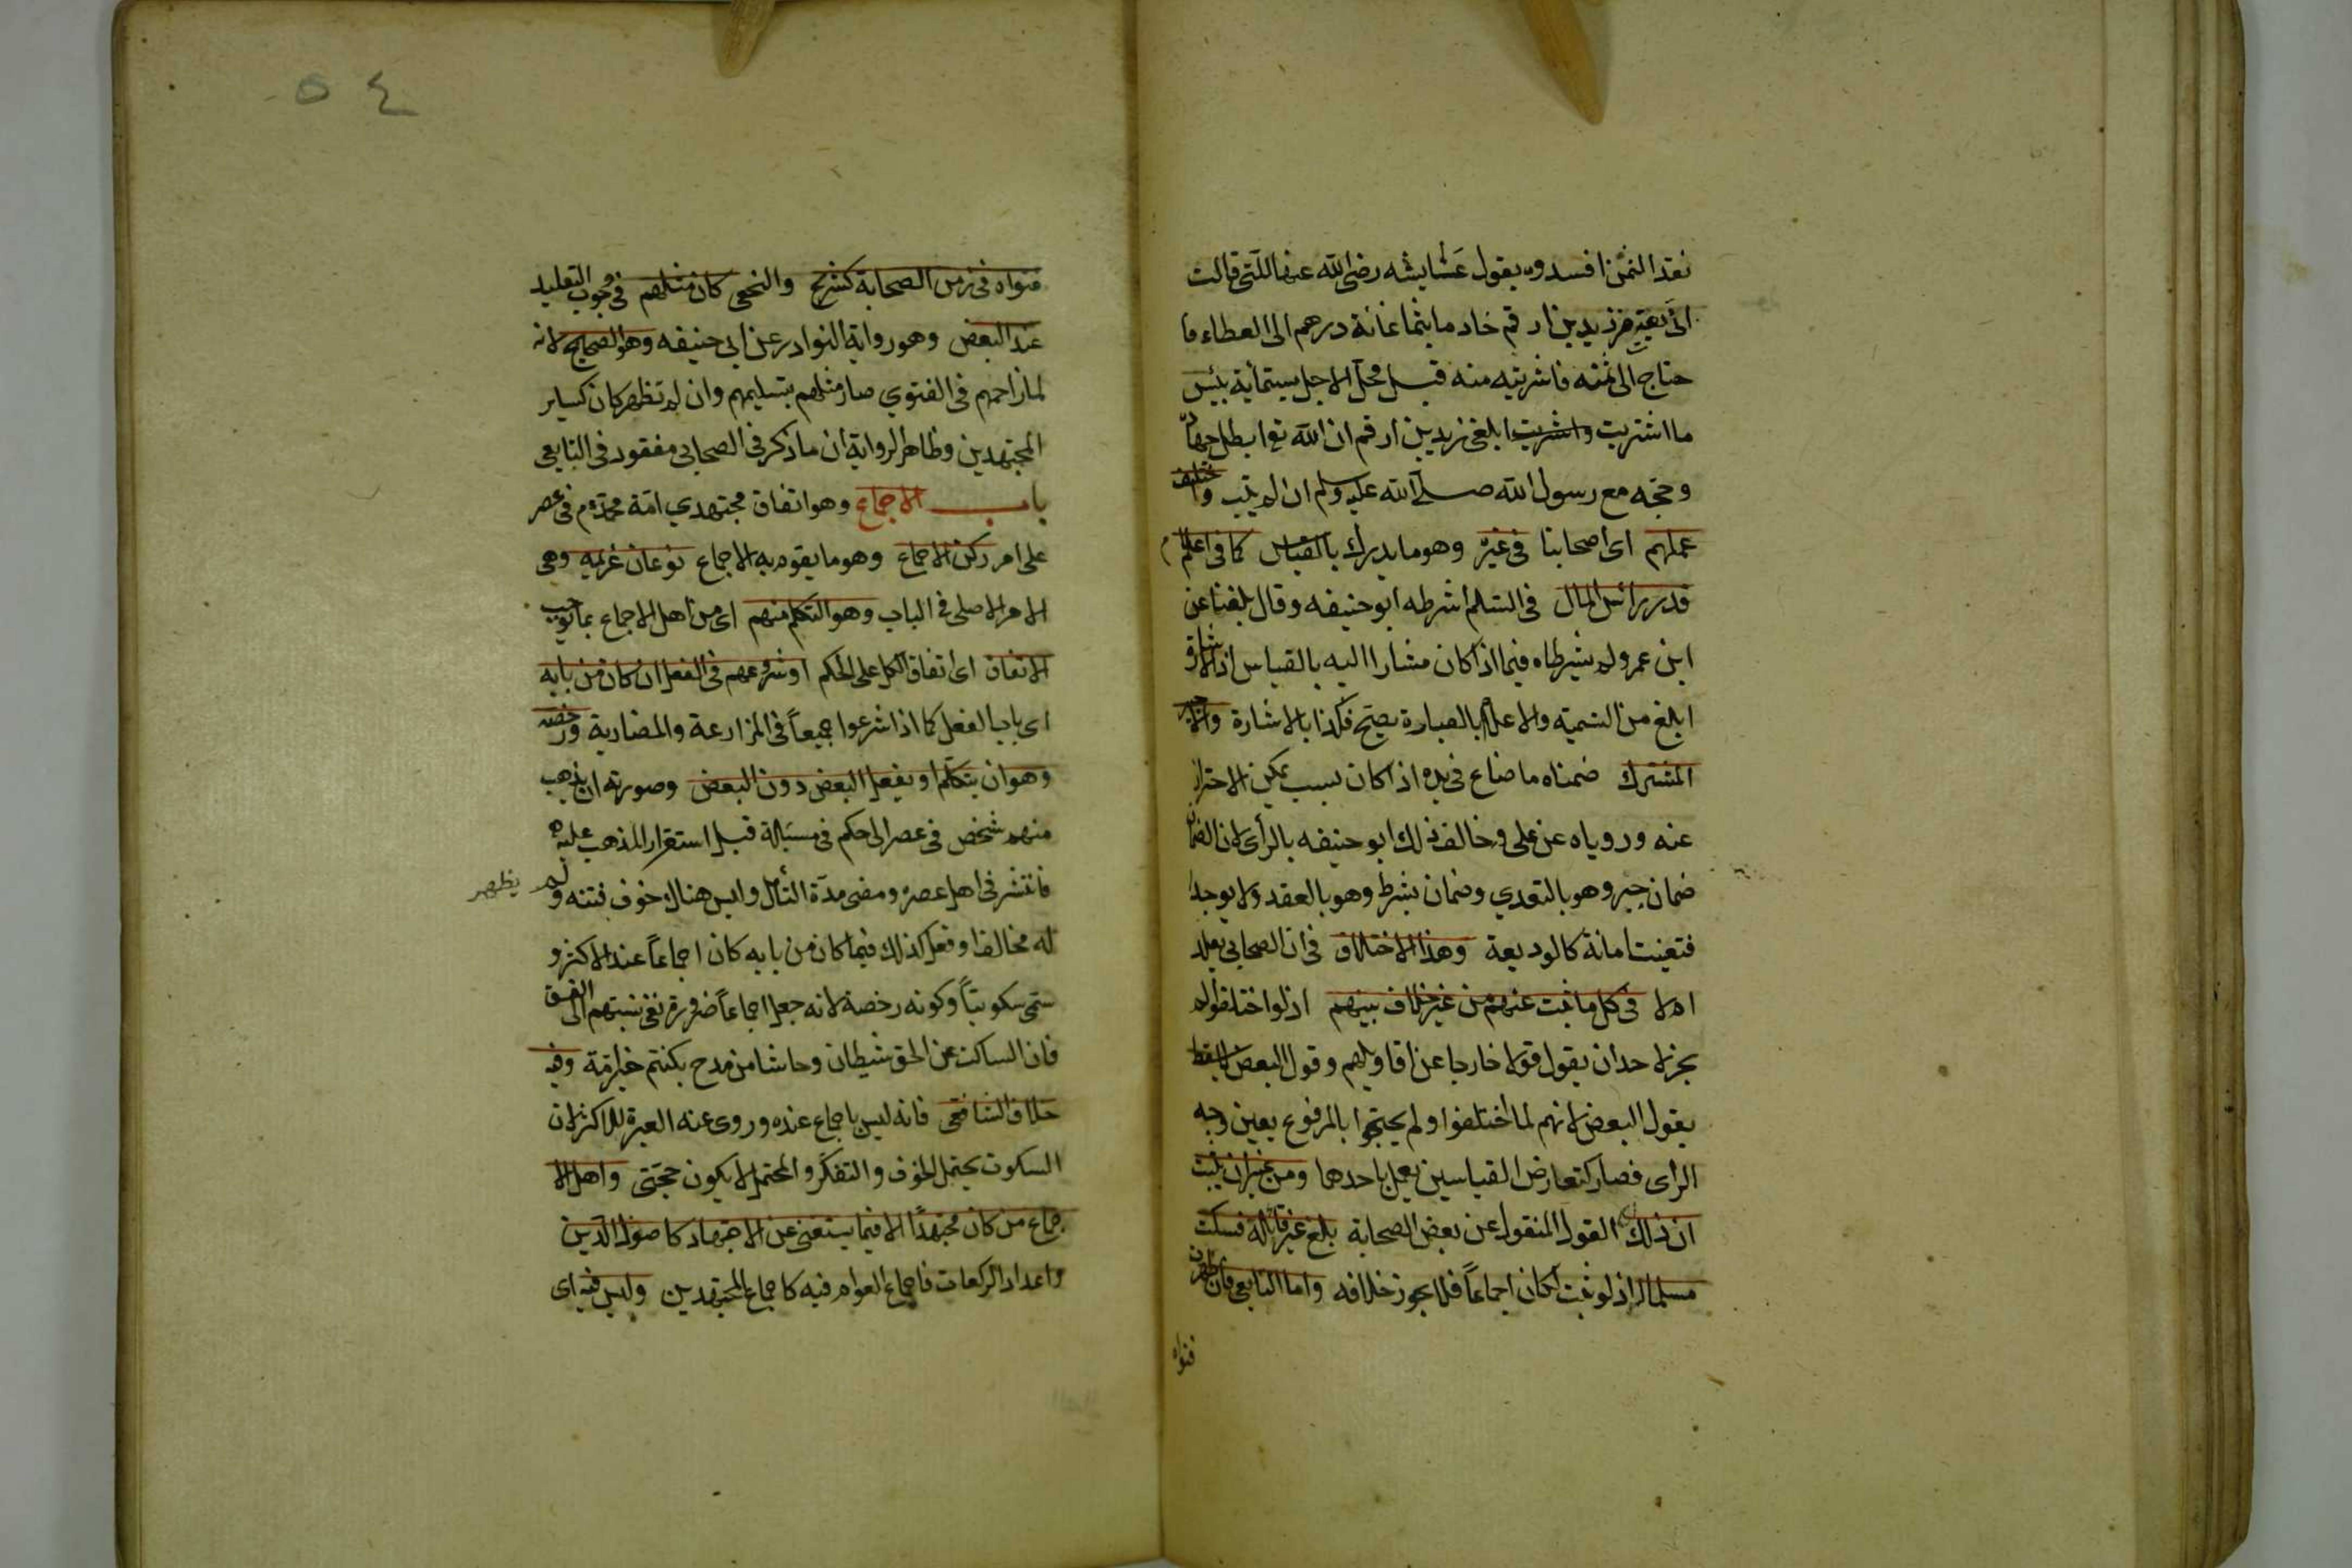 نقد الثمن افسدوه بقول عشايشه رضى الله عنها اللتى قالت
انى بعته من زيد بن ارقم خادما بثمانمائة درهم الى العطاء فا
حتاج الى ثمنه فاشريته منه قبل محل الاجل بستمأية بئس
ما اشتريت واشريت ابلغى زيد بن ارقم ان الله تع ابطل جهاده
وحجه مع رسول الله صلى الله عليه وسلم ان لم يتب واختلف
عملهم اى اصحابنا فى غيره وهو ما يدرك بالقياس كما فى اعلام
قدر رائس المال فى السلم اشرطه ابو حنيفه وقال بلغنا عن
ابن عمر ولم يشرطاه فيما اذا كان مشارا اليه بالقياس اذ الاشارة
ابلغ من التسمية والاعلام بالعبارة يصح فكذا بالاشارة والاجير
المشترك ضمناه ما ضاع فى يده اذا كان بسبب يمكن الاحتراز
عنه وروياه عن على وخالف ذلك ابو حنيفه بالرأى لان الضمان
ضمان جبر وهو بالتعدي وضمان بشرط وهو بالعقد ولا يوجدا
فتعينت امانة كالوديعة وهذا الاختلاف فى ان الصحابى يقلد
ام لا فى كل ما ثبت عنهم من غير خلاف بينهم اذ لو اختلفوا لم
يجز لاحد ان يقول قولا خارجا عن اقاويلهم وقول البعض لا يسقط
بقول البعض لانهم لما اختلفوا ولم يحتجوا بالمرفوع بعين وجه
الرأى فصار كتعارض القياسين يعمل باحدهما ومن غير ان يثبت
ان ذلك القول المنقول عن بعض الصحابة بلغ غير قائله فسكت
مسلما له اذ لو ثبت لكان اجماعاً فلا يجوز خلافه واما التابعى فان ظهرت
فتواه
٥٤
فتواه فى زمن الصحابة كشريح والنخعى كان مثلهم فى وجوب التقليد
عند البعض وهو رواية النوادر عن ابى حنيفه وهو الصحيح لانه
لما زاحمهم فى الفتوي صار مثلهم بتسليمهم وان لم تظهر كان كساير
المجتهدين وظاهر الرواية ان ما ذكر فى الصحابى مفقود فى التابعى
باب الاجماع وهو اتفاق مجتهدي امة محمد م فى عصر
على امر ركن الاجماع وهو ما يقوم به الاجماع نوعان عزيمه وهى
الامر الاصلى فى الباب وهو التكلم منهم اى من اهل الاجماع بما يوجب
الاتفاق اى اتفاق الكل على الحكم او شروعهم فى الفعل ان كان من بابه
اى باب الفعل كما اذا شرعوا جميعاً فى المزارعة والمضاربة ورخصه
وهو ان يتكلم او يفعل البعض دون البعض وصورته ان يذهب
منهم شخص فى عصر الى حكم فى مسئلة قبل استقرار المذهب عليه
فانتشر فى اهل عصره ومضى مدة التأمل وليس هناك خوف فتنه ولم يظهر
له مخالف او فعل كذلك فيما كان من بابه كان اجماعاً عند الاكثر و
سمى سكوتياً وكونه رخصة لانه جعل اجماعاً ضرورة نفى نسبتهم الى الفسق
فان الساكت عن الحق شيطان وحاشا من مدح بكنتم خير امة وفيه
خلاف الشافعى فانه ليس باجماع عنده وروى عنه العبرة للاكثر لان
السكوت يحتمل الخوف والتفكر والمحتمل لا يكون حجتى واهل الا
جماع من كان مجتهدًا الا فيما يستغنى عن الاجتهاد كاصول الدين
واعداد الركعات فاجماع العوام فيه كاجماع المجتهدين وليس فيه اى